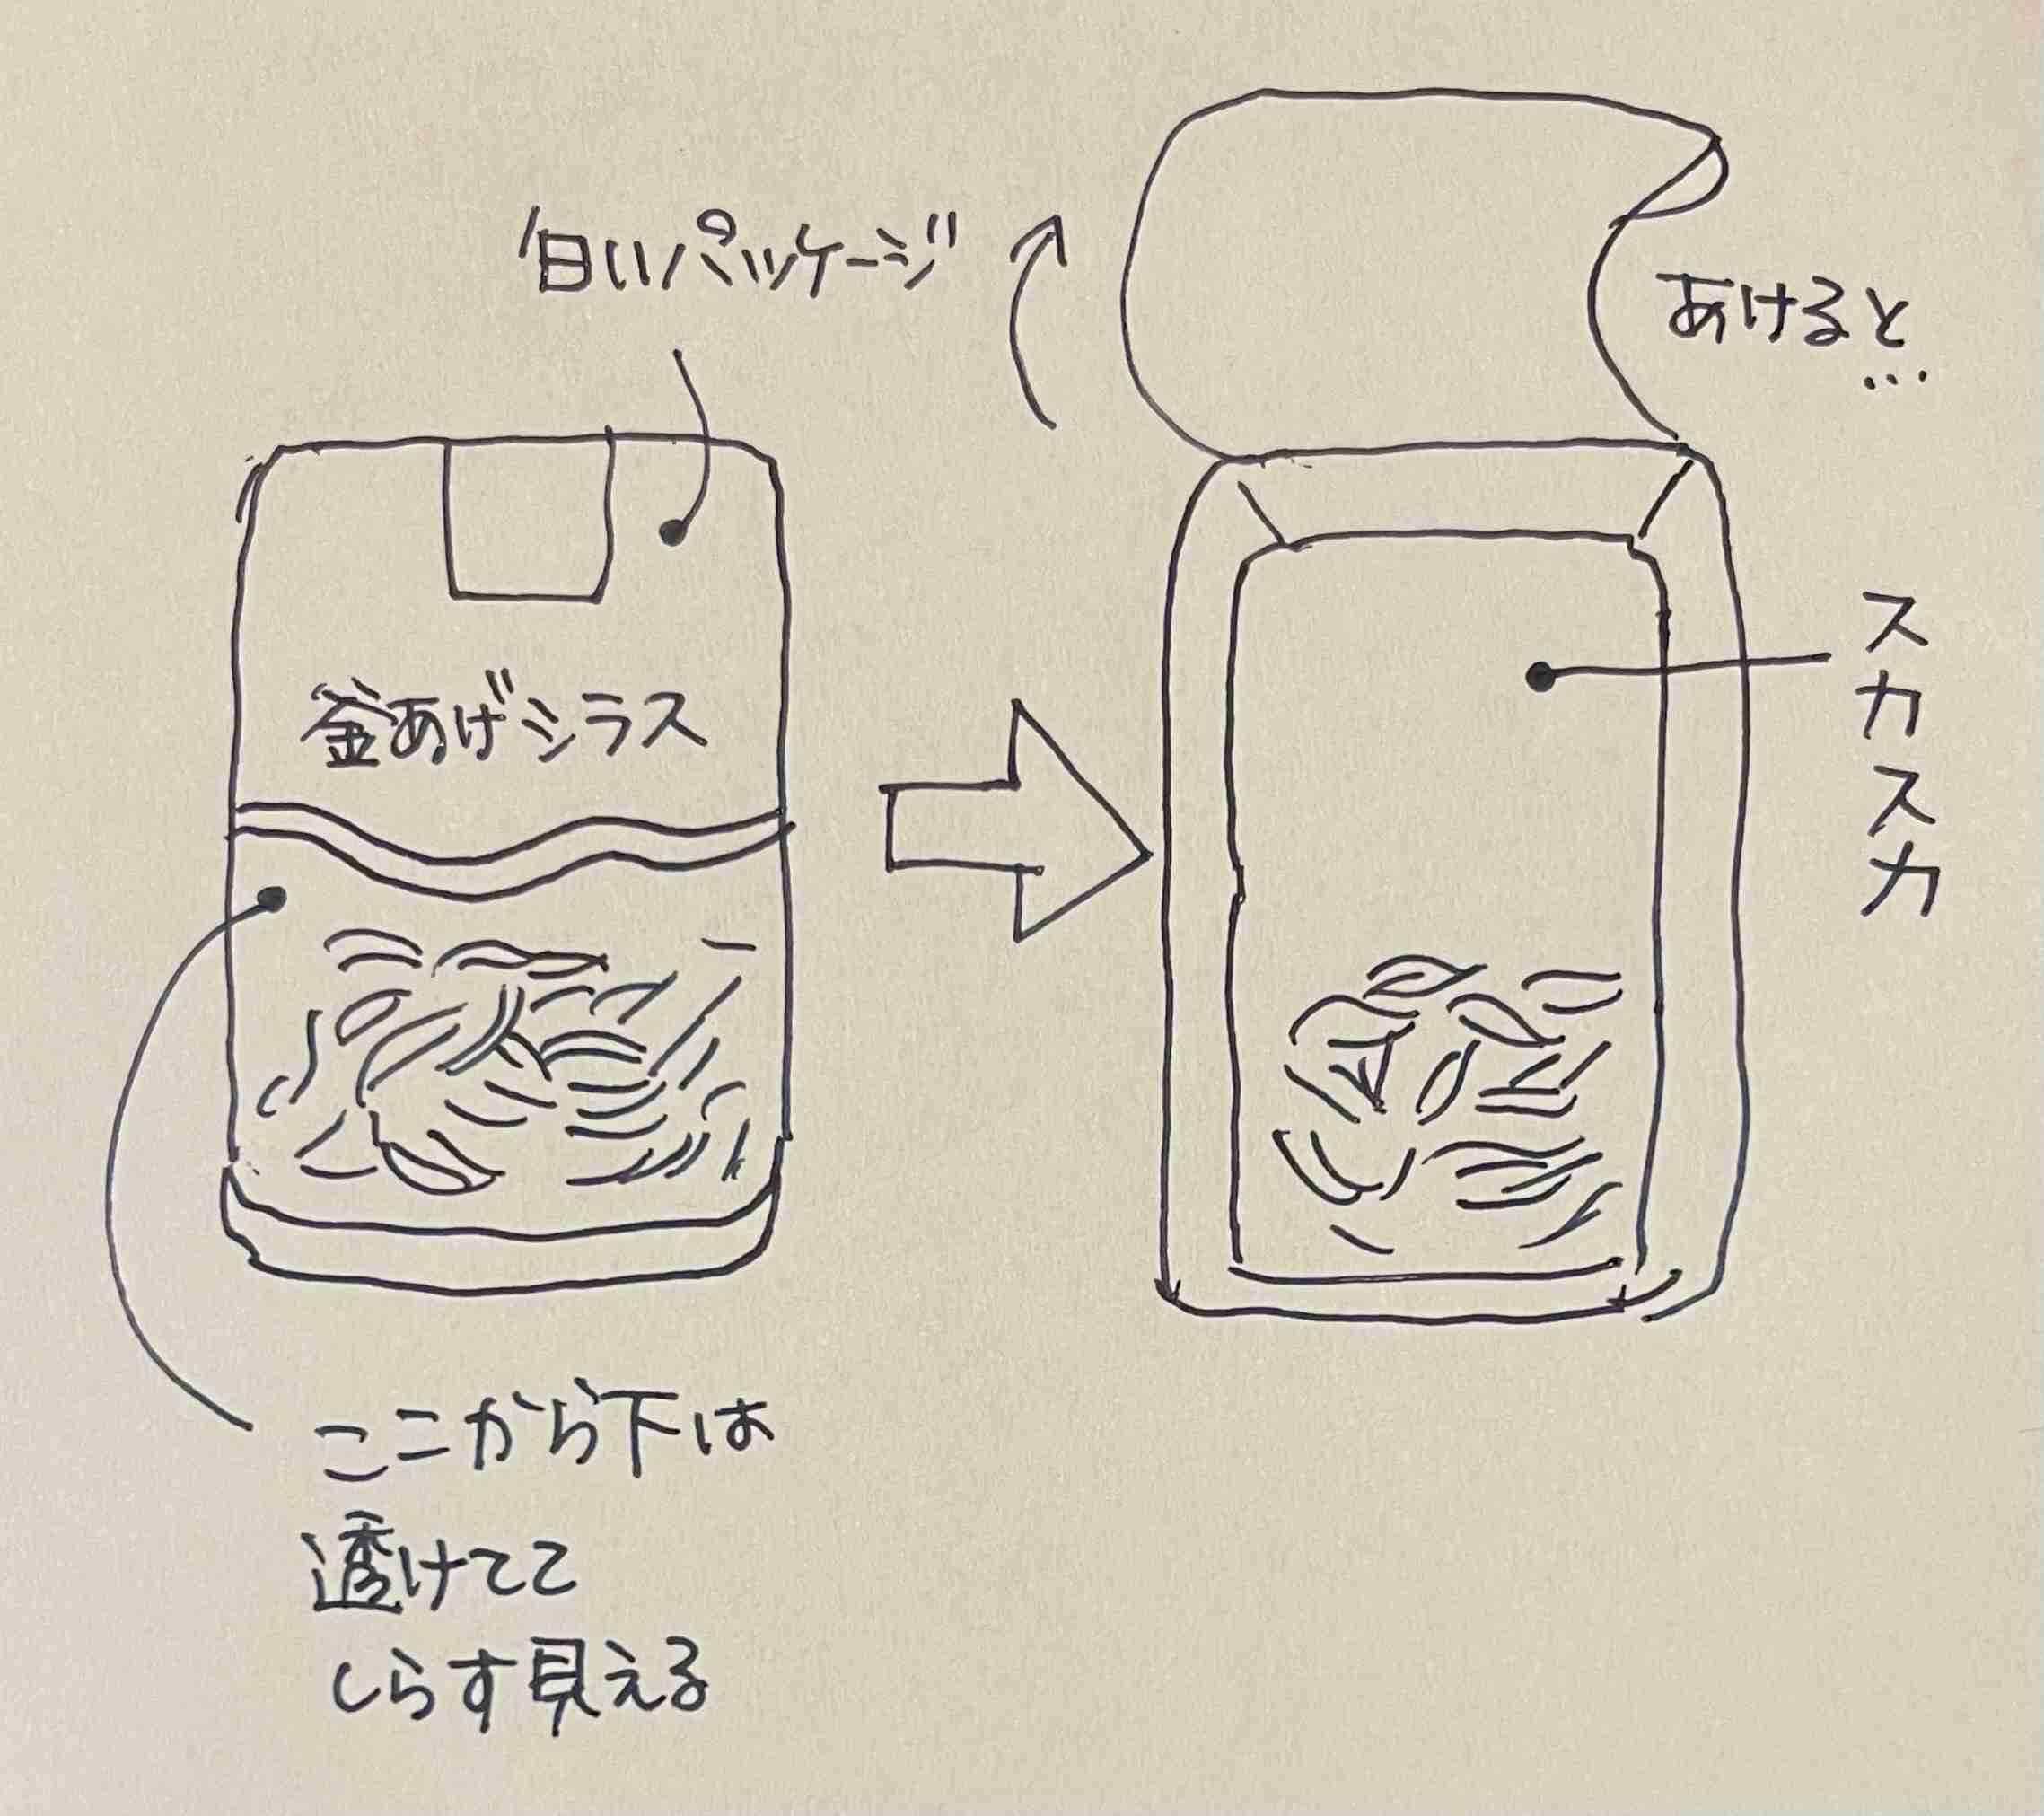 白いパッケージ
釜あげシラス
ここから下は
透けてて
しらす見える
あけると
…
スカスカ